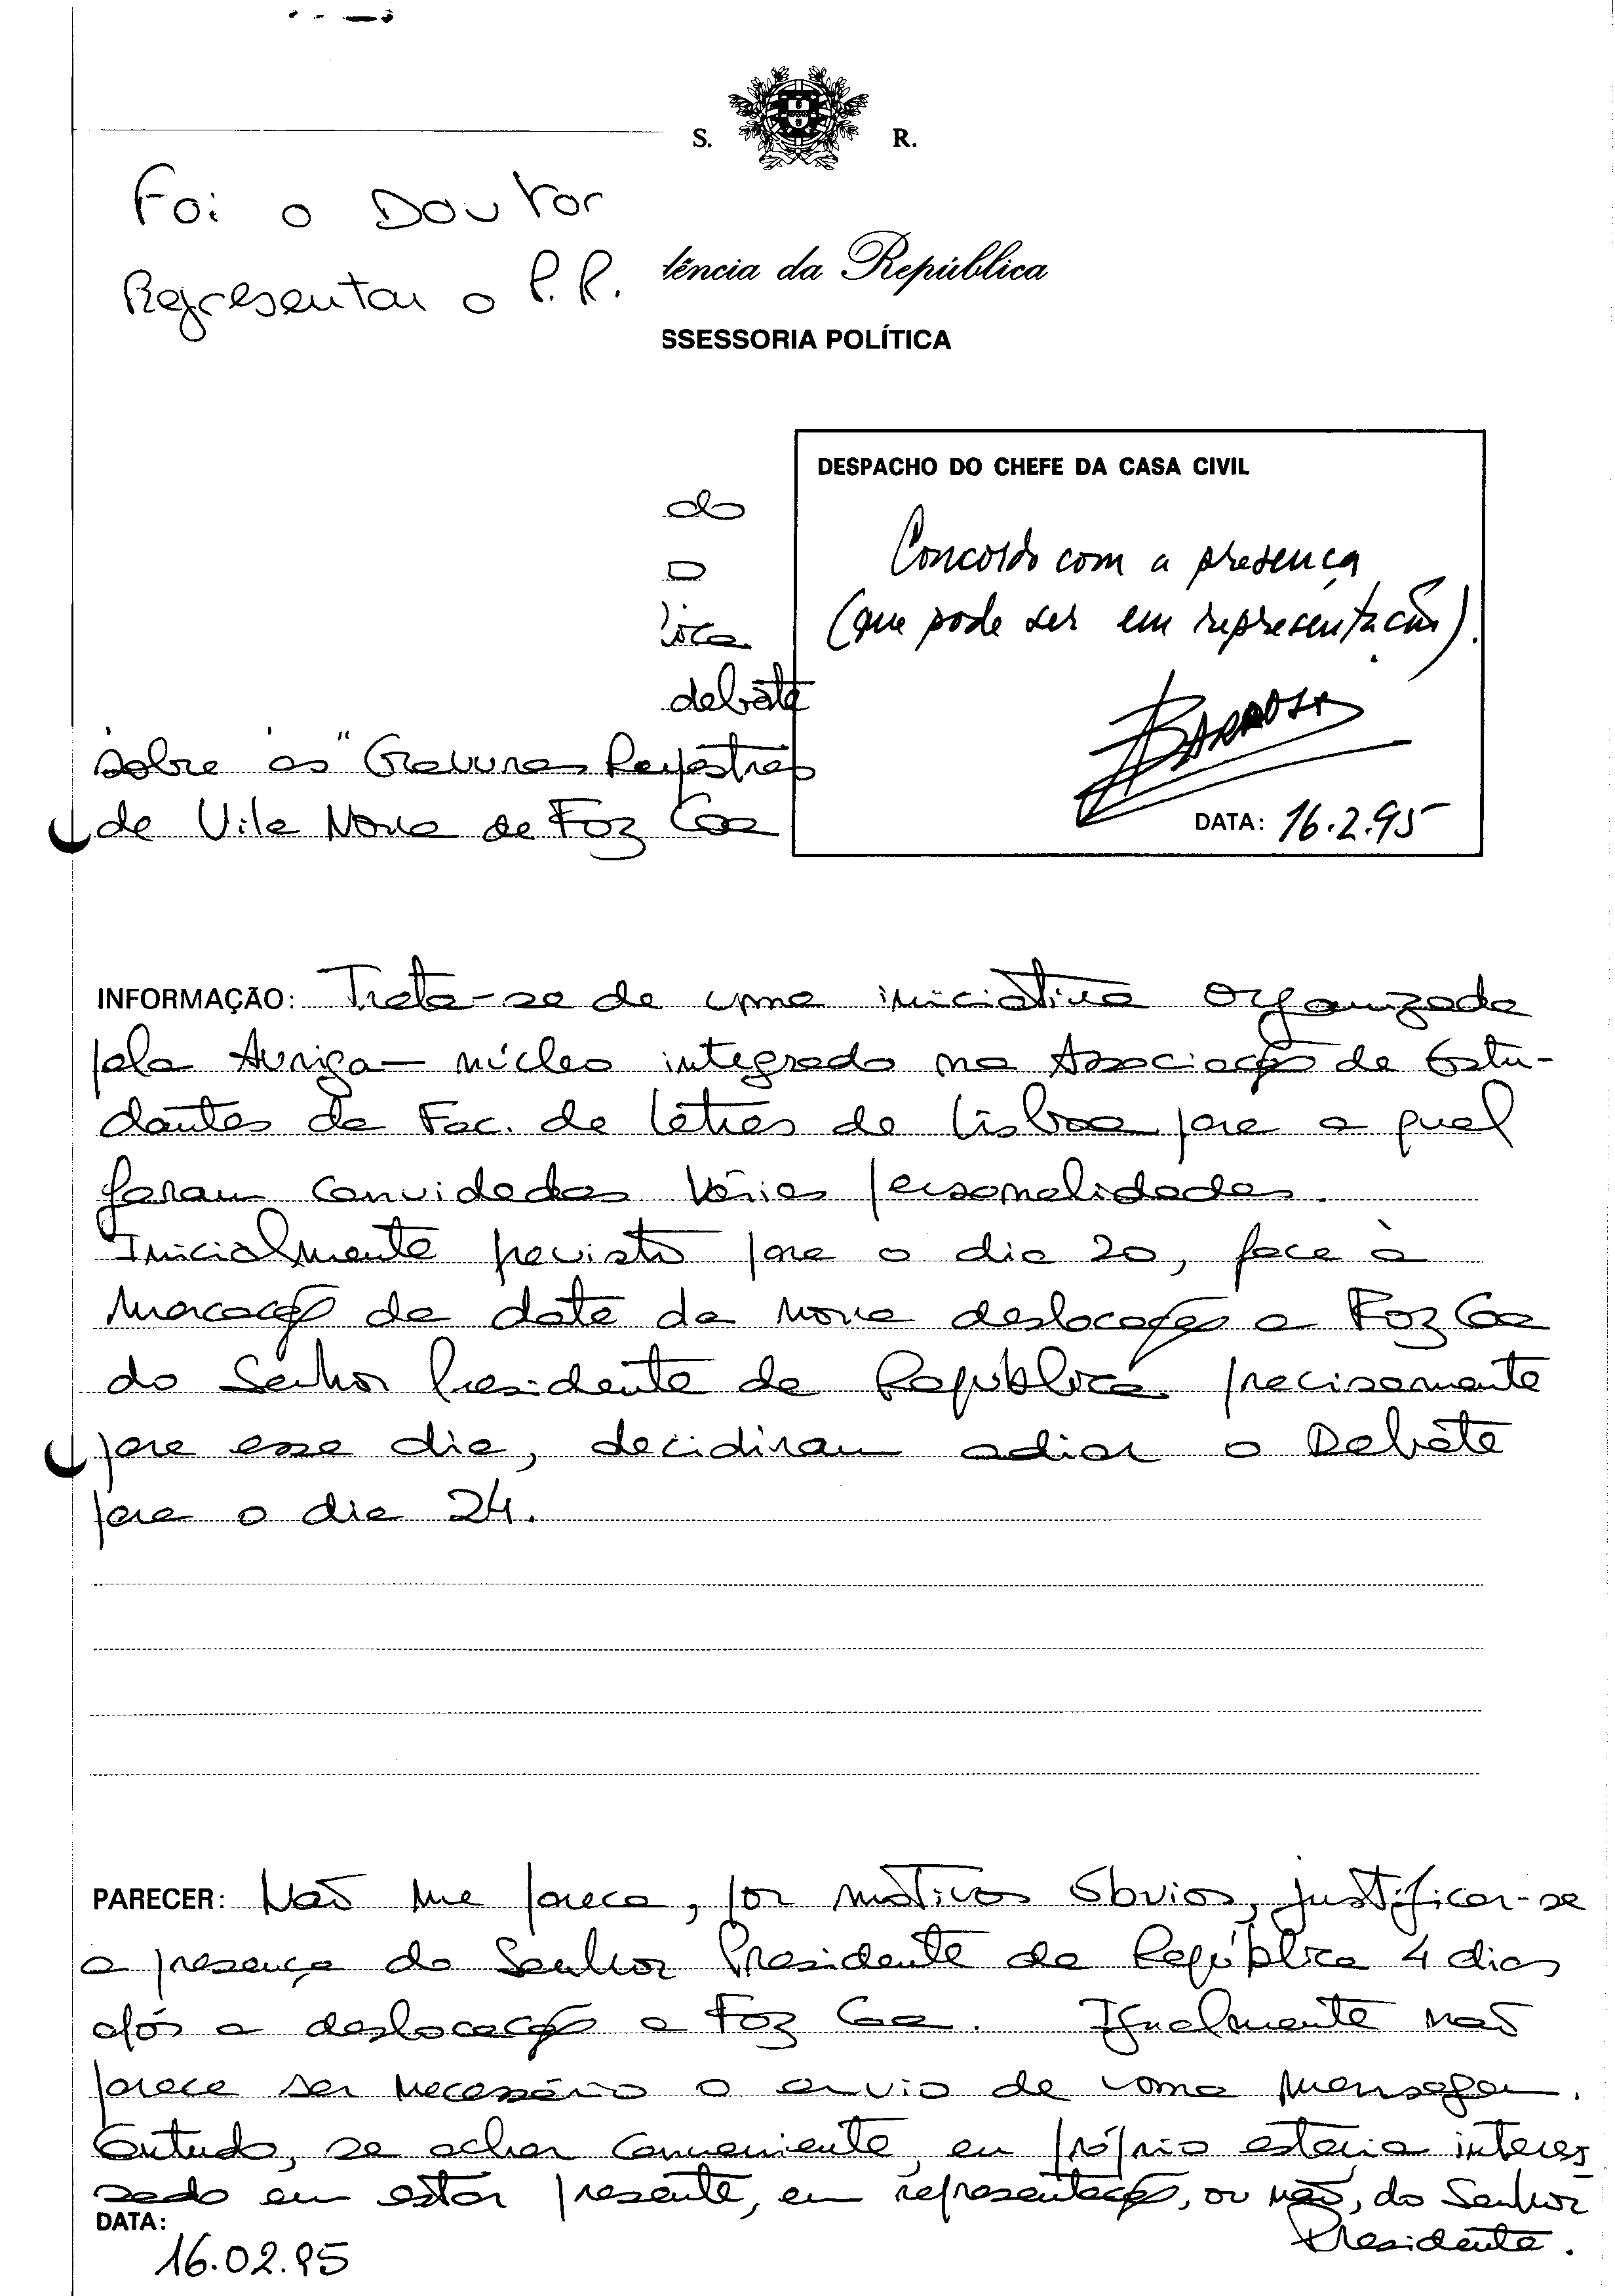 S. R.
Foi o Doutor
Representar o P.R.
dência da República
SSESSORIA POLÍTICA
DESPACHO DO CHEFE DA CASA CIVIL
do
o
debate
Concordo com a presença
(que pode ser em representação).
BARROSO
DATA: 16.2.95
sobre as "Gravuras Rupestres
de Vila Nova de Foz Coa
INFORMAÇÃO: Trata-se de uma iniciativa organizada
pela Auriga - núcleo integrado na Associação de Estu-
dantes da Fac. de Letras de Lisboa para a qual
foram convidadas várias personalidades.
Inicialmente previsto para o dia 20, face à
marcação da data da nova deslocação a Foz Coa
do Senhor Presidente da República precisamente
para esse dia, decidiram adiar o Debate
para o dia 24.
PARECER: Não me parece, por motivos óbvios, justificar-se
a presença do Senhor Presidente da República 4 dias
após a deslocação a Foz Coa. Igualmente não
parece ser necessário o envio de uma mensagem.
Contudo, se achar conveniente, eu próprio estaria interes
sado em estar presente, em representação, ou não, do Senhor
Presidente.
DATA:
16.02.95